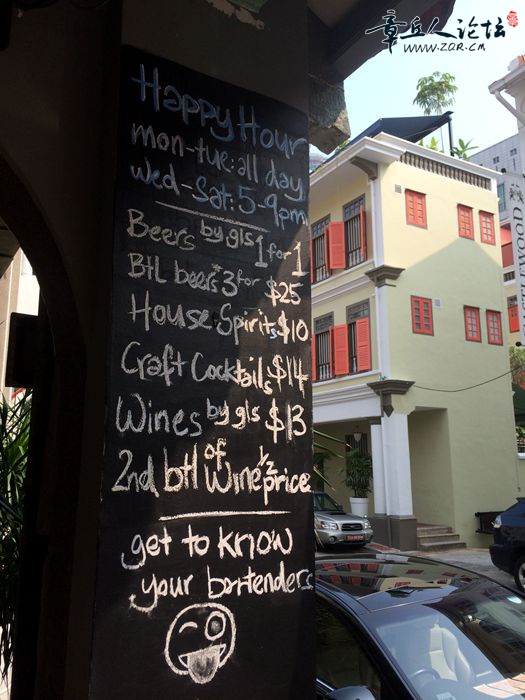 章丘人论坛
www.ZQR.CM
Happy Hour
mon-tue: all day
Wed-Sat: 5-9pm
Beers by gls 1 for 1
Btl beers* 3 for $25
House Spirits $10
Craft Cocktails $14
Wines by gls $13
2nd btl of Wine 1/2 price
get to know
your bartenders